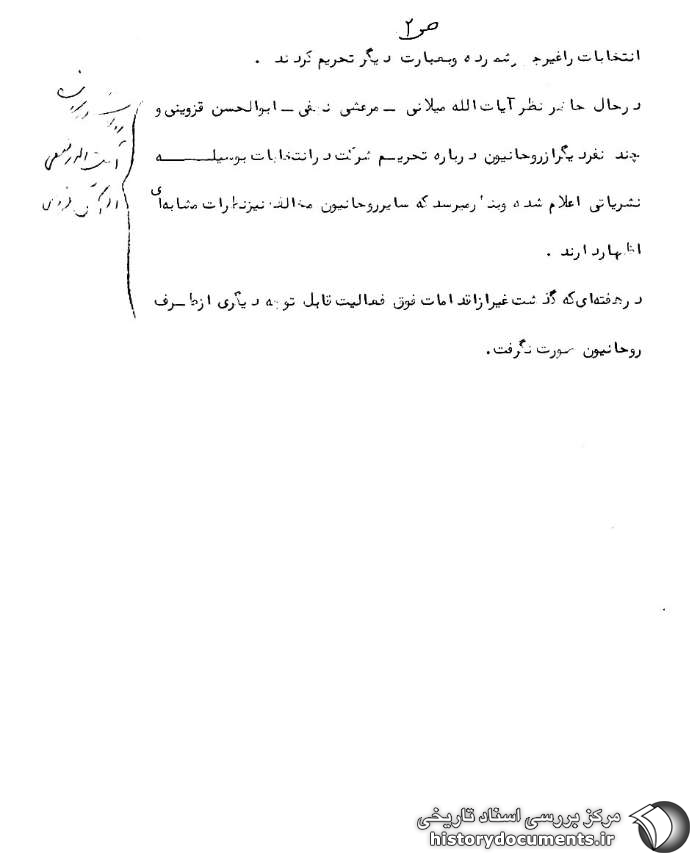 ص ۲
انتخابات را غیر شمرده وبعبارت دیگر تحریم کردند .
درحال حاضر نظر آیات الله میلانی - مرعشی نجفی - ابوالحسن قزوینی و
چند نفردیگراز روحانیون درباره تحریم شرکت درانتخابات بوسیله
نشریاتی اعلام شده وبنظرمیرسد که سایرروحانیون مخالف نیزنظرات مشابه‌ای
اظهاردارند .
درهفته‌ای‌که گذشت غیرازاقدامات فوق فعالیت قابل توجه دیگری ازطرف
روحانیون صورت نگرفت .
مرکز بررسی اسناد تاریخی
historydocuments.ir